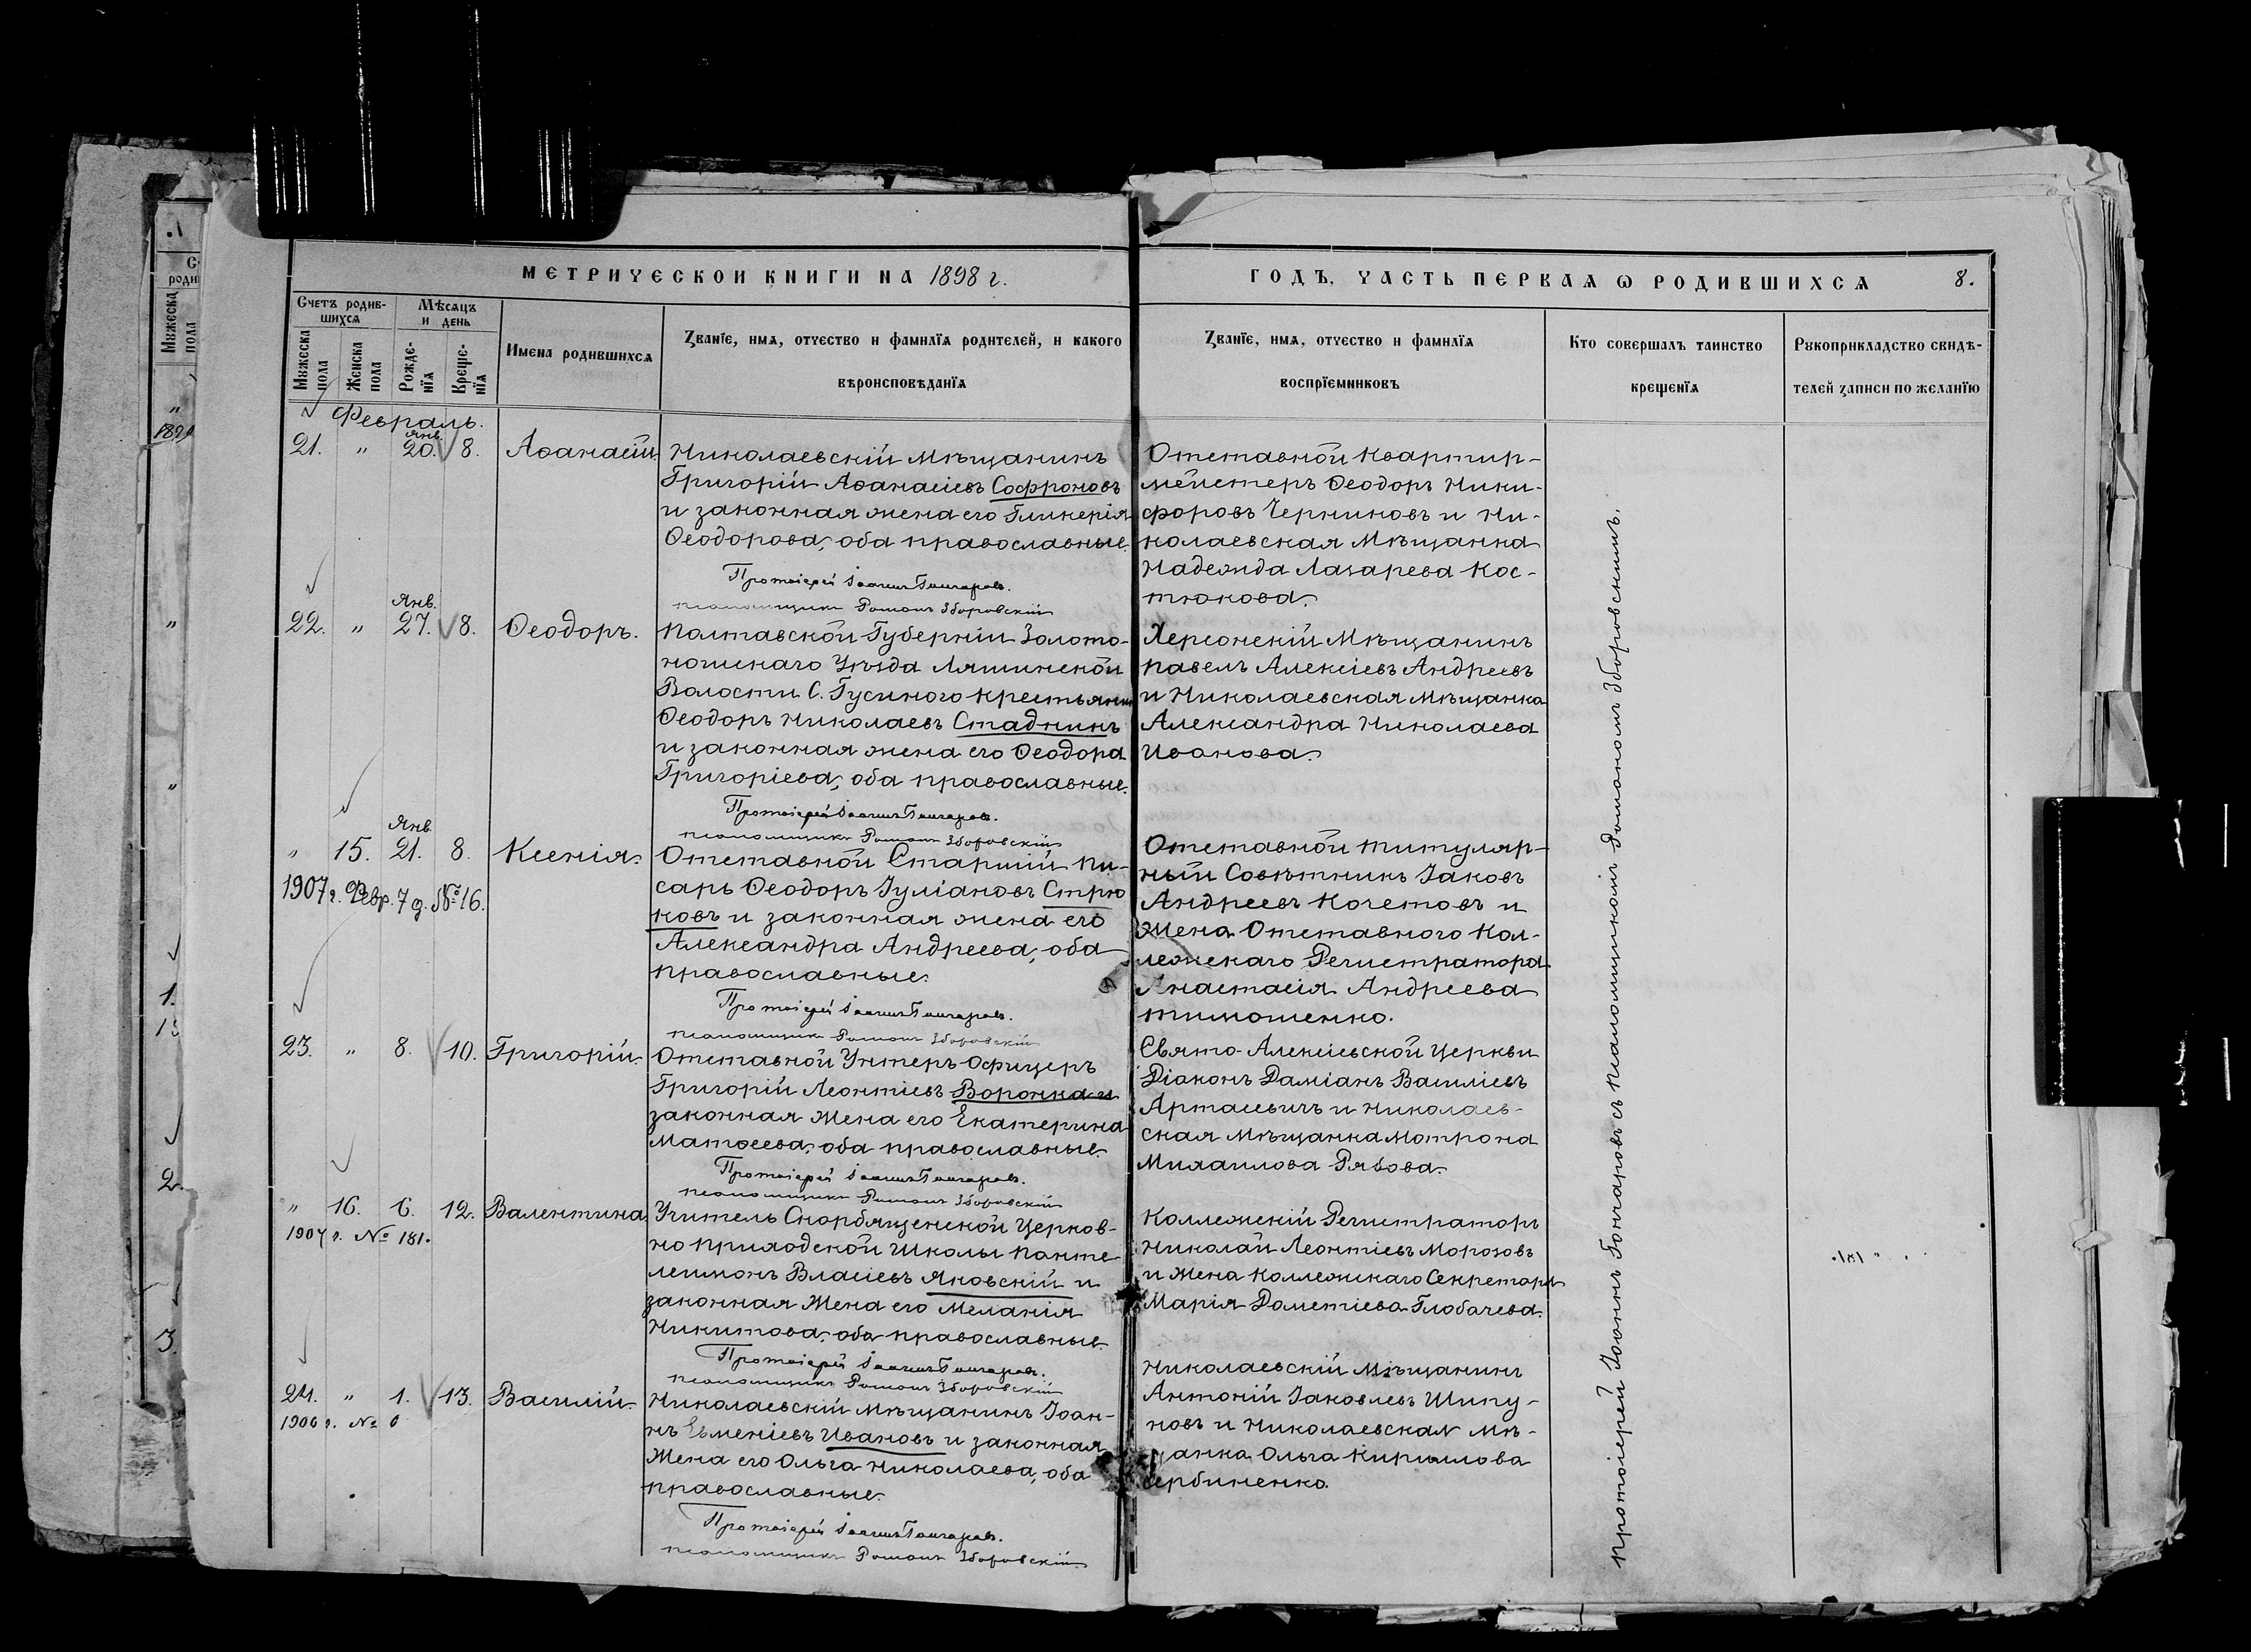 МЕТРИЧЕСКОЙ КНИГИ НА 1898 г.
ГОДЪ, ЧАСТЬ ПЕРВАЯ Ѡ РОДИВШИХСЯ 8.
Счетъ родив-
шихся
Мѣсяцъ
и день
Мужеска
пола
Женска
пола
Рожде-
нїя
Креще-
нїя
Имена родившихся
Званїе, имя, отчество и фамилїя родителей, и какого
вѣроисповѣданїя
Званїе, имя, отчество и фамилїя
воспрїемниковъ
Кто совершалъ таинство
крещенїя
Рукоприкладство свидѣ-
телей записи по желанїю
Февраль.
Янв.
21. " 20. 8. Аѳанасій.
Николаевскій Мѣщанинъ
Григорій Аѳанасіевъ Софроновъ
и законная жена его Гликерія
Ѳеодорова, оба православные.
Протоіерей Іоаннъ Гончаровъ.
псаломщикъ Романъ Зборовскій
Отставной Квартир-
мейстеръ Ѳеодоръ Ники-
форовъ Черниковъ и Ни-
колаевская Мѣщанка
Надежда Лазарева Кос-
тюкова.
Янв.
22. " 27. 8. Ѳеодоръ.
Полтавской Губерніи Золото-
ношскаго Уѣзда Ляшинской
Волости С. Гусиного крестьянин
Ѳеодоръ Николаевъ Стадникъ
и законная жена его Ѳеодора
Григоріева, оба православные.
Протоіерей Іоаннъ Гончаровъ.
псаломщикъ Романъ Зборовскій
Херсонскій Мѣщанинъ
Павелъ Алексіевъ Андреевъ
и Николаевская Мѣщанка
Александра Николаева
Иванова.
Янв.
" 15. 21. 8. Ксенія.
1907 г. Февр. 7 д. № 16.
Отставной Старшій пи-
сарь Ѳеодоръ Іуліановъ Стрю
ковъ и законная жена его
Александра Андреева, оба
православные.
Протоіерей Іоаннъ Гончаровъ.
псаломщикъ Романъ Зборовскій
Отставной титуляр-
ный Совѣтникъ Іаковъ
Андреевъ Кочетовъ и
Жена Отставного Кол-
лежскаго Регистратора
Анастасія Андреева
Тимошенко.
23. " 8. 10. Григорій.
Отставной Унтеръ-Офицеръ
Григорій Леонтіевъ Воронка и
законная Жена его Екатерина
Матѳеева, оба православные.
Протоіерей Іоаннъ Гончаровъ.
псаломщикъ Романъ Зборовскій
Свято-Алексіевской Церкви
Діаконъ Даміанъ Василіевъ
Артасевичъ и Николаев-
ская Мѣщанка Мотрона
Михаилова Рябова.
" 16. 6. 12. Валентина
1907 г. № 181.
Учитель Скорбященской Церков-
но приходской Школы Панте
леимонъ Власіевъ Яковскій и
законная Жена его Меланія
Никитова, оба православные.
Протоіерей Іоаннъ Гончаровъ.
псаломщикъ Романъ Зборовскій
Коллежскій Регистраторъ
Николай Леонтіевъ Морозовъ
и Жена Коллежскаго Секретаря
Марія Дометіева Глобачева.
24. " 1. 13. Василій.
1906 г. №
Николаевскій Мѣщанинъ Іоан-
нъ Евменіевъ Ивановъ и законная
Жена его Ольга Николаева, оба
православные.
Протоіерей Іоаннъ Гончаровъ.
псаломщикъ Романъ Зборовскій
Николаевскій Мѣщанинъ
Антоній Іаковлевъ Шипу-
новъ и Николаевская Мѣ-
щанка Ольга Кириллова
Сербиненко.
Протоіерей Іоаннъ Гончаровъ съ псаломщикомъ Романомъ Зборовскимъ.